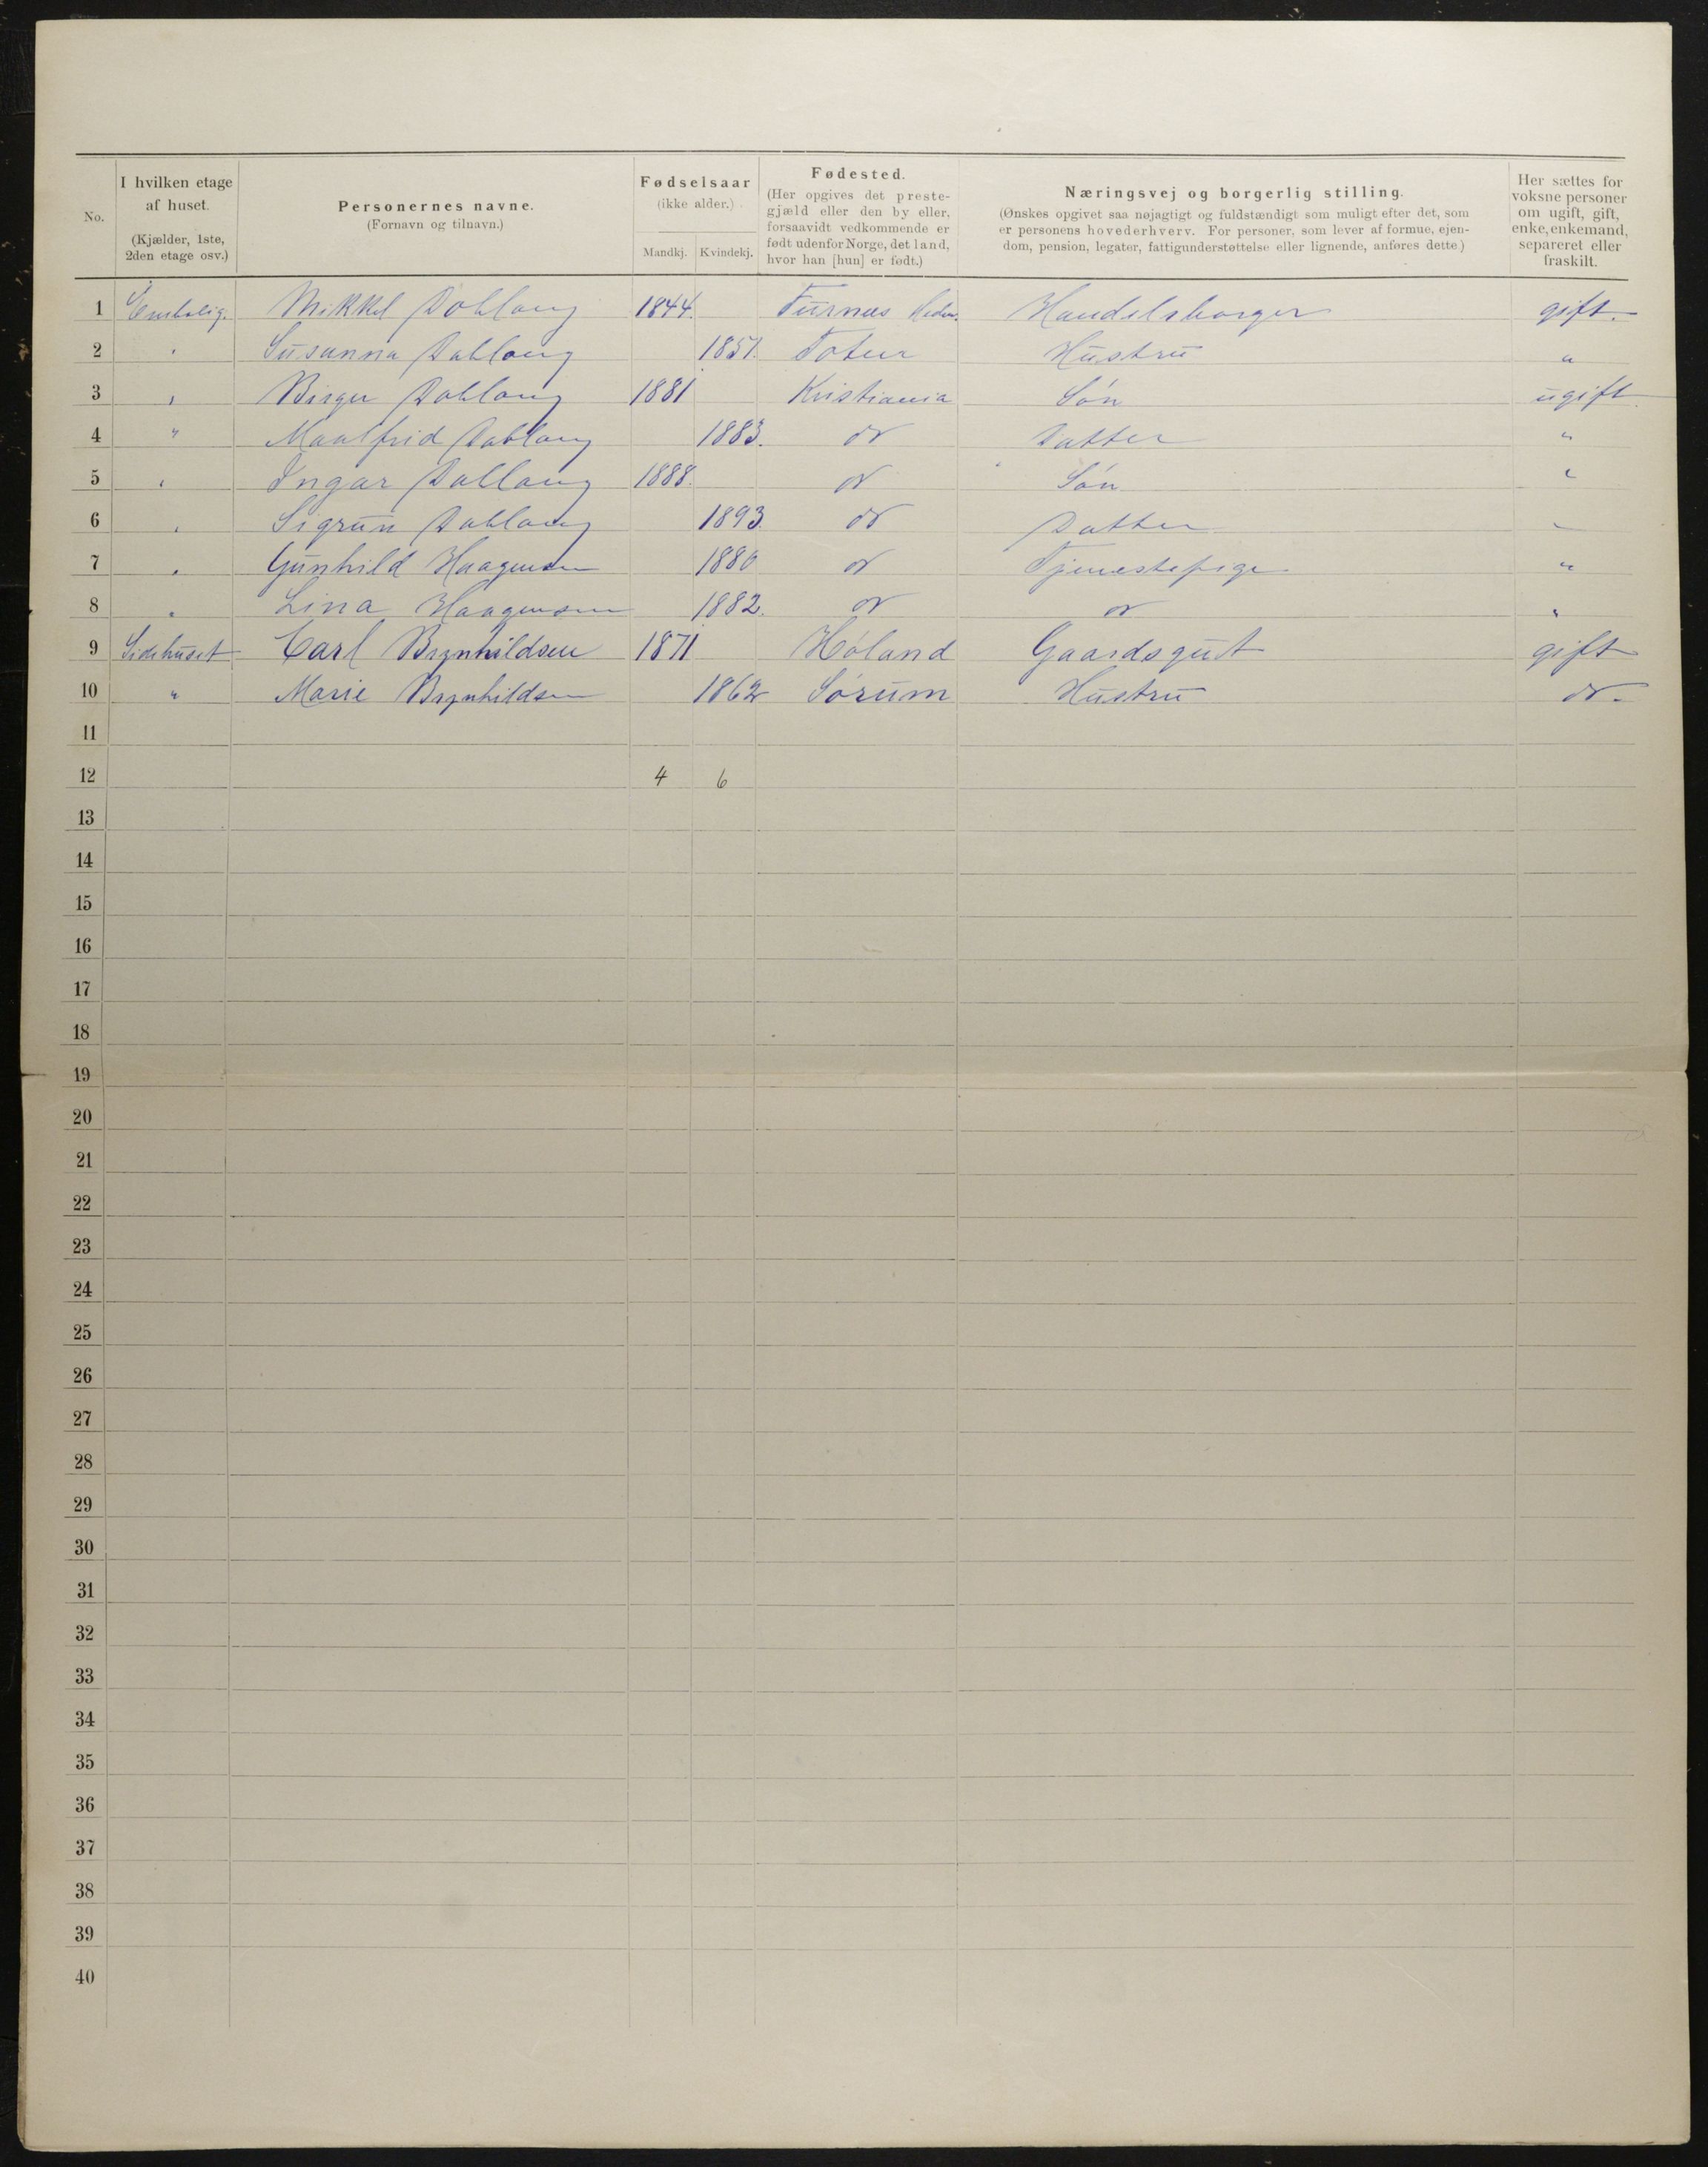 No.
I hvilken etage af huset. (Kjælder, 1ste, 2den etage osv.)
Personernes navne. (Fornavn og tilnavn.)
Fødselsaar (ikke alder.) Mandkj. Kvindekj.
Fødested. (Her opgives det prestegjæld eller den by eller, forsaavidt vedkommende er født udenfor Norge, det land, hvor han [hun] er født.)
Næringsvej og borgerlig stilling. (Ønskes opgivet saa nøjagtigt og fuldstændigt som muligt efter det, som er personens hovederhverv. For personer, som lever af formue, ejendom, pension, legater, fattigunderstøttelse eller lignende, anføres dette.)
Her sættes for voksne personer om ugift, gift, enke, enkemand, separeret eller fraskilt.
1 Mikkel 1844. Furnæs Hedm. Handelsborger gift.
2 " Susanna 1851. Toten Hustru "
3 " Birger 1881 Kristiania Søn ugift
4 " Maalfrid 1883. do Datter "
5 " Ingar 1888. do Søn "
6 " Sigrun 1893. do Datter "
7 " Gunhild Haagensen 1880 do Tjenestepige "
8 " Lina Haagensen 1882. do do "
9 Sidehuset Carl Brynhildsen 1871 Høland Gaardsgut gift
10 " Marie Brynhildsen 1862 Sørum Hustru do.
11
12 4 6
13
14
15
16
17
18
19
20
21
22
23
24
25
26
27
28
29
30
31
32
33
34
35
36
37
38
39
40